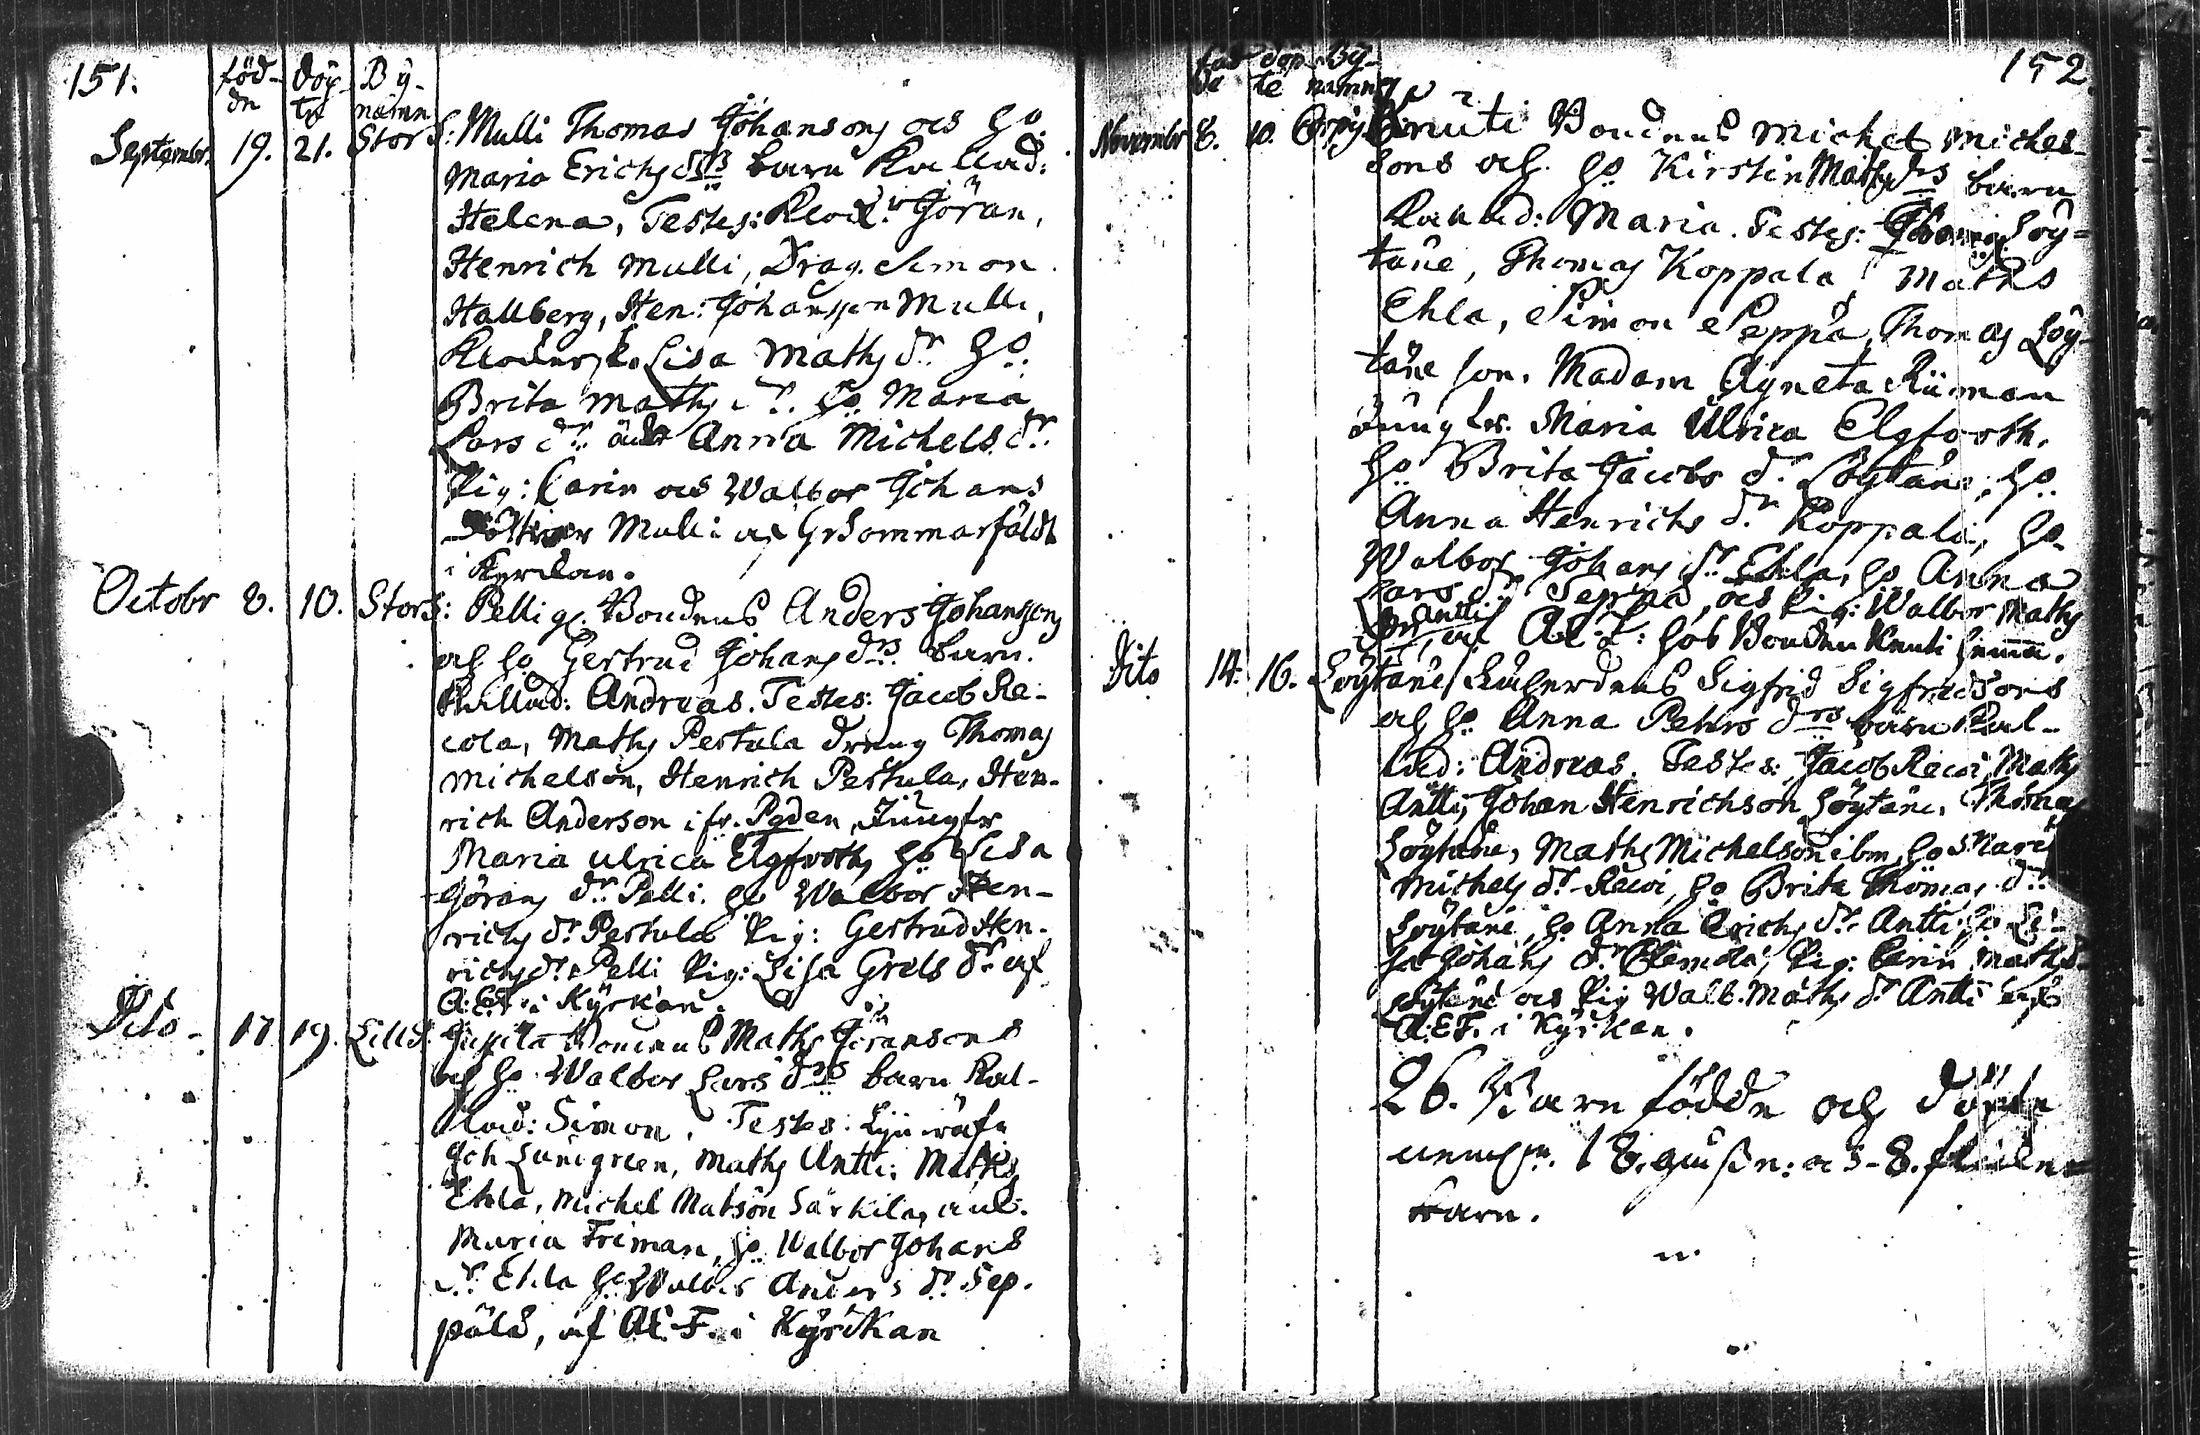 151.
född- döp- By-
de te namn
September. 19. 21. Stor S: Mulli Thomas Johansons och ho
Maria Erichs drs barn Kallad:
Helena, Testes: Klock. Göran,
Henrich Mulli, Drag. Simon
Hallberg, Hen: Johansson Mulli,
Klockersk. Lisa Maths dr ho.
Brita Maths dr. ho Maria
Lars dr. Anna Michels dr.
Pig: Carin och Walbor Johans
döttrar Mulli af Gr Sommarfäldt
i Kyrckan.
Octobr 8. 10. Stor S: Pelli Bondens Anders Johanssons
och ho Gertrud Johans drs barn.
Kallad: Andreas. Testes: Jacob Re-
cola, Maths Pertula dreng Thomas
Michelson, Henrich Pertula, Hen-
rich Anderson ifr. Jungfr
Maria Ulrica Elgfooth, ho Lisa
Görans dr Pelli. ho Walbor Hen-
richs dr Pertula Pig: Gertrud Hen-
richs dr. Pelli Pig: Lisa Grels dr af
A:E:F. i Kyrkan.
Dito - 17 19. Lill S. Bondens Maths Göransons
och ho Walbor Lars drs barn Kal-
lad: Simon. Testes:
Joh Lundgreen, Maths Antti. Maths
Ehla, Michel Matson Särkila,
Maria Friman, ho Walbor Johans
dr. Ehla ho Walb.r Anders dr Sep-
pälä, af A.E.F. i Kyrkan
152.
föd- döp- By-
de te namn
November 8. 10. Knuti Bondens Michel Michel-
sons och ho Kirstin Maths drs barn
Kallad: Maria. Testes: Löy-
täne, Thomas Koppala, Maths
Ehla, Simon Seppä, Thomas Löy-
täne son. Madam Agneta Riiman
Jungfr. Maria Ulrica Elgfooth.
ho Brita Jacobs dr Löytäne, ho
Anna Henrichs dr Koppala, ho
Walbor Johans dr Ehla, ho Anna
Lars dr, och Pig: Walbor Maths
dr Antti, af A.E.F: hos Bonden Knuti hemma.
Dito 14. 16. Löytäne Sigfrid Sigfredsons
och ho Anna Peters drs barn Kal-
lad: Andreas. Testes: Jacob Maths
Antti, Johan Henrichson Löytäne, Thomas
Löytäne, Maths Michelson ibm, ho Mari
Michels dr ho Brita Thomas dr.
Löytäne, ho Anna Erichs dr. Antti, ho Li-
sa Johans dr. Pig: Carin Maths d.
Löytäne och Pig Walb. Maths dr Antti af
A:E:F. i Kyrkan.
26. Barn födde och döpte
18. 8.
barn.